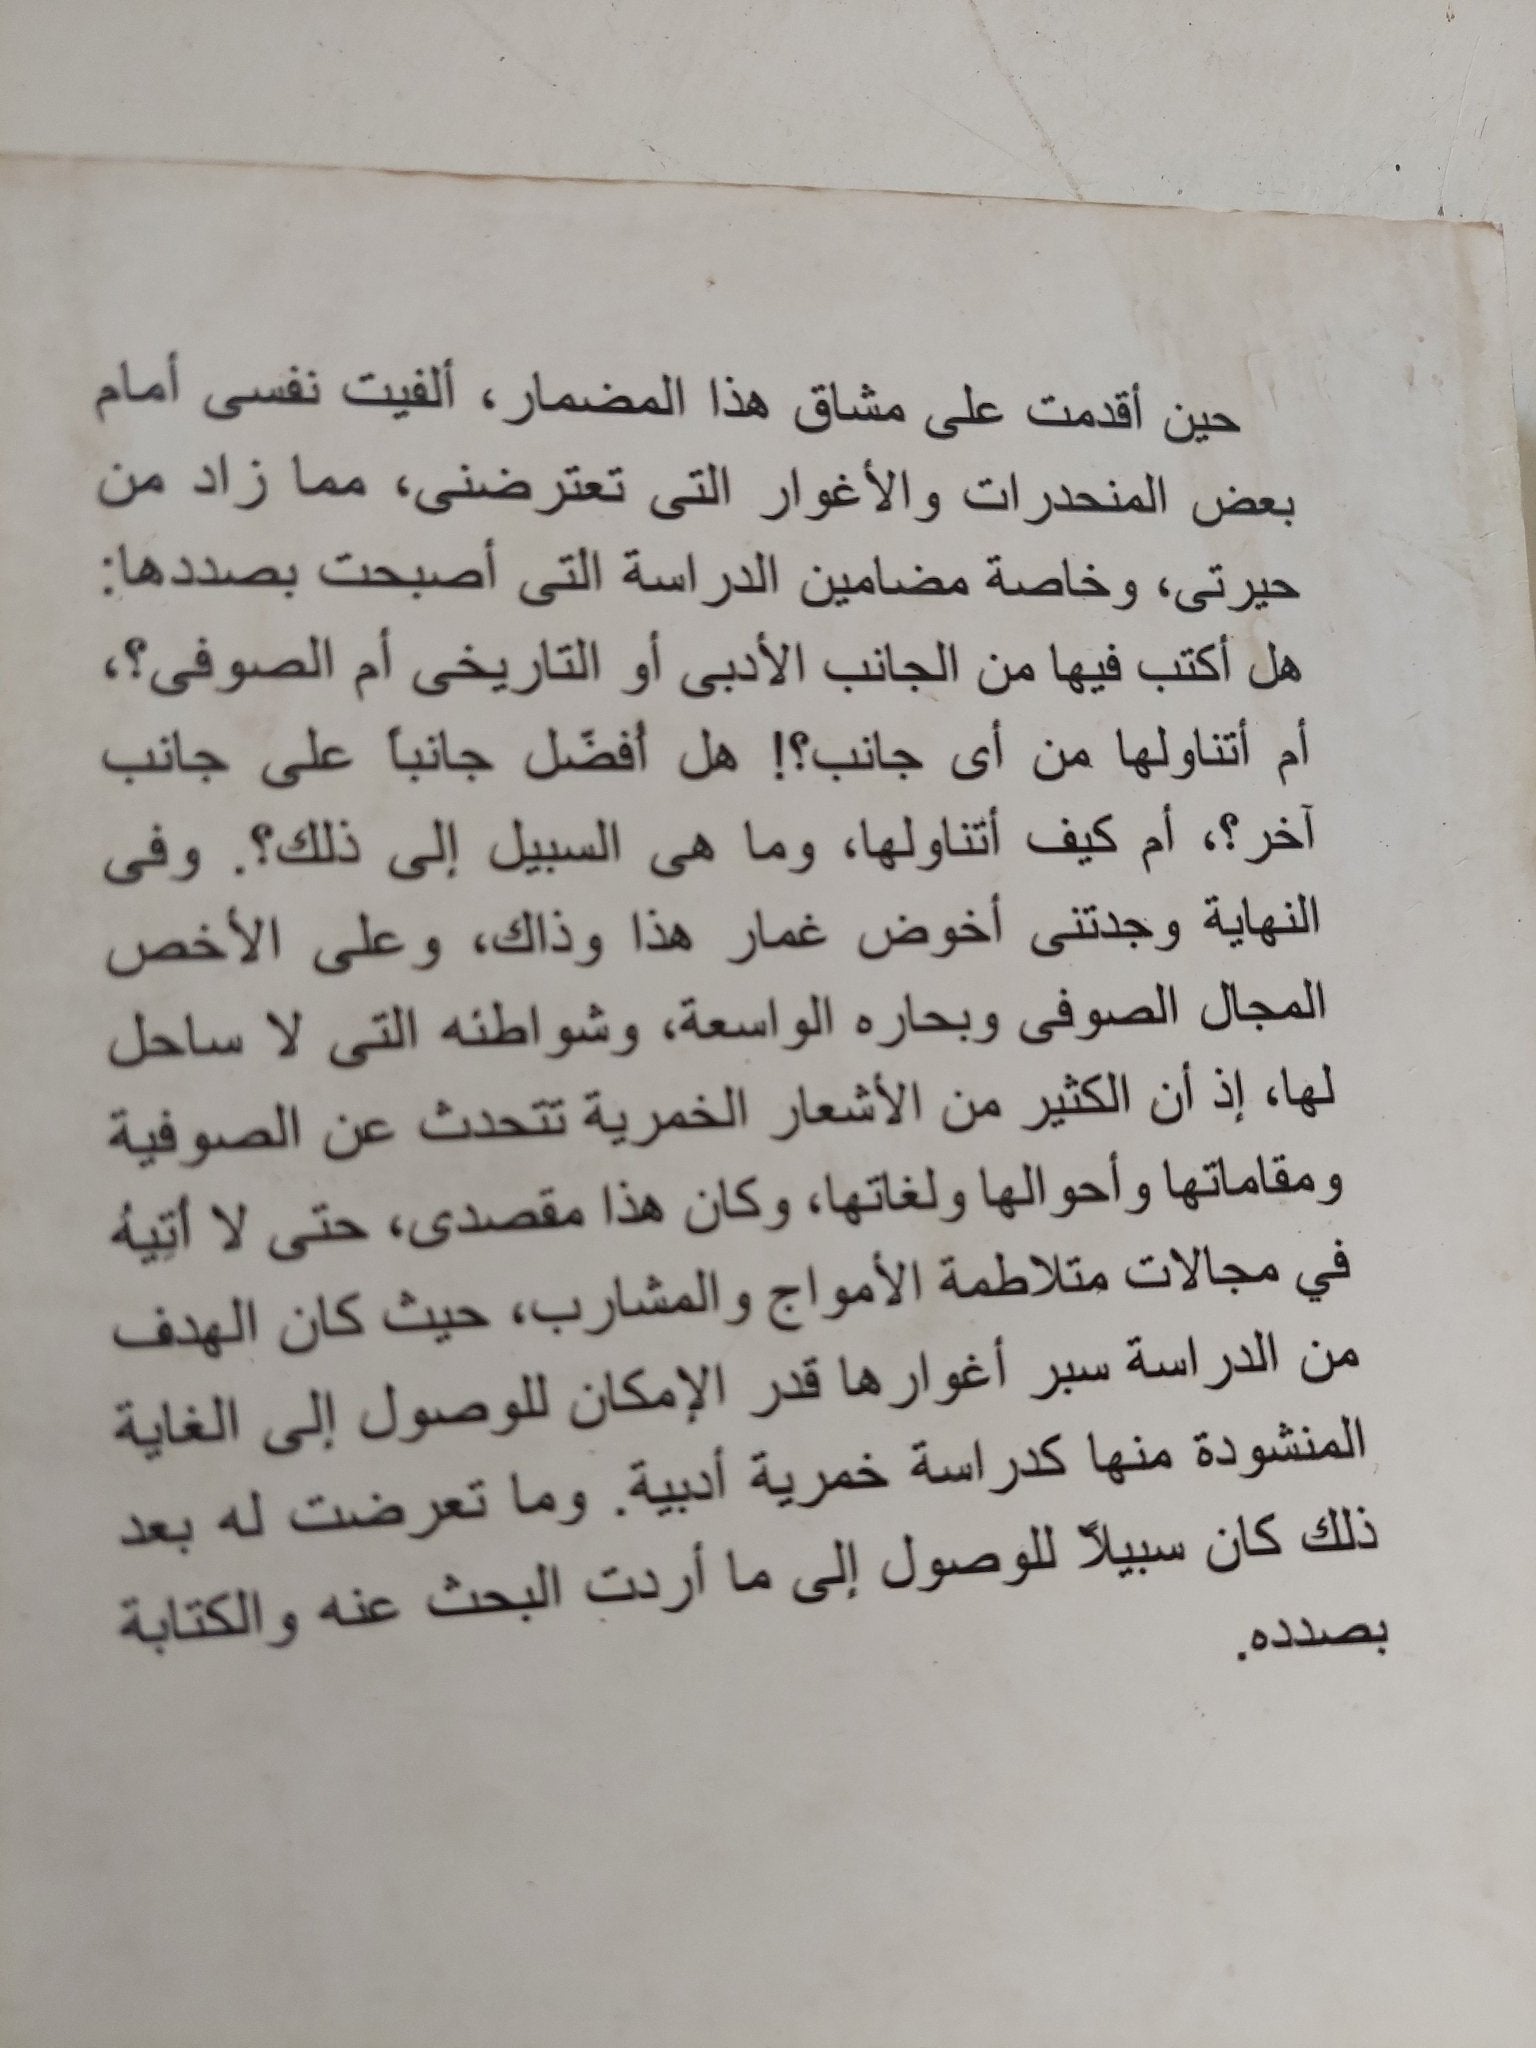 حين أقدمت على مشاق هذا المضمار، ألفيت نفسى أمام
بعض المنحدرات والأغوار التى تعترضنى، مما زاد من
حيرتى، وخاصة مضامين الدراسة التى أصبحت بصددها:
هل أكتب فيها من الجانب الأدبى أو التاريخى أم الصوفى؟،
أم أتناولها من أى جانب؟! هل أفضّل جانباً على جانب
آخر؟، أم كيف أتناولها، وما هى السبيل إلى ذلك؟. وفى
النهاية وجدتنى أخوض غمار هذا وذاك، وعلى الأخص
المجال الصوفى وبحاره الواسعة، وشواطئه التى لا ساحل
لها، إذ أن الكثير من الأشعار الخمرية تتحدث عن الصوفية
ومقاماتها وأحوالها ولغاتها، وكان هذا مقصدى، حتى لا أتِيهُ
في مجالات متلاطمة الأمواج والمشارب، حيث كان الهدف
من الدراسة سبر أغوارها قدر الإمكان للوصول إلى الغاية
المنشودة منها كدراسة خمرية أدبية. وما تعرضت له بعد
ذلك كان سبيلاً للوصول إلى ما أردت البحث عنه والكتابة
بصدده.